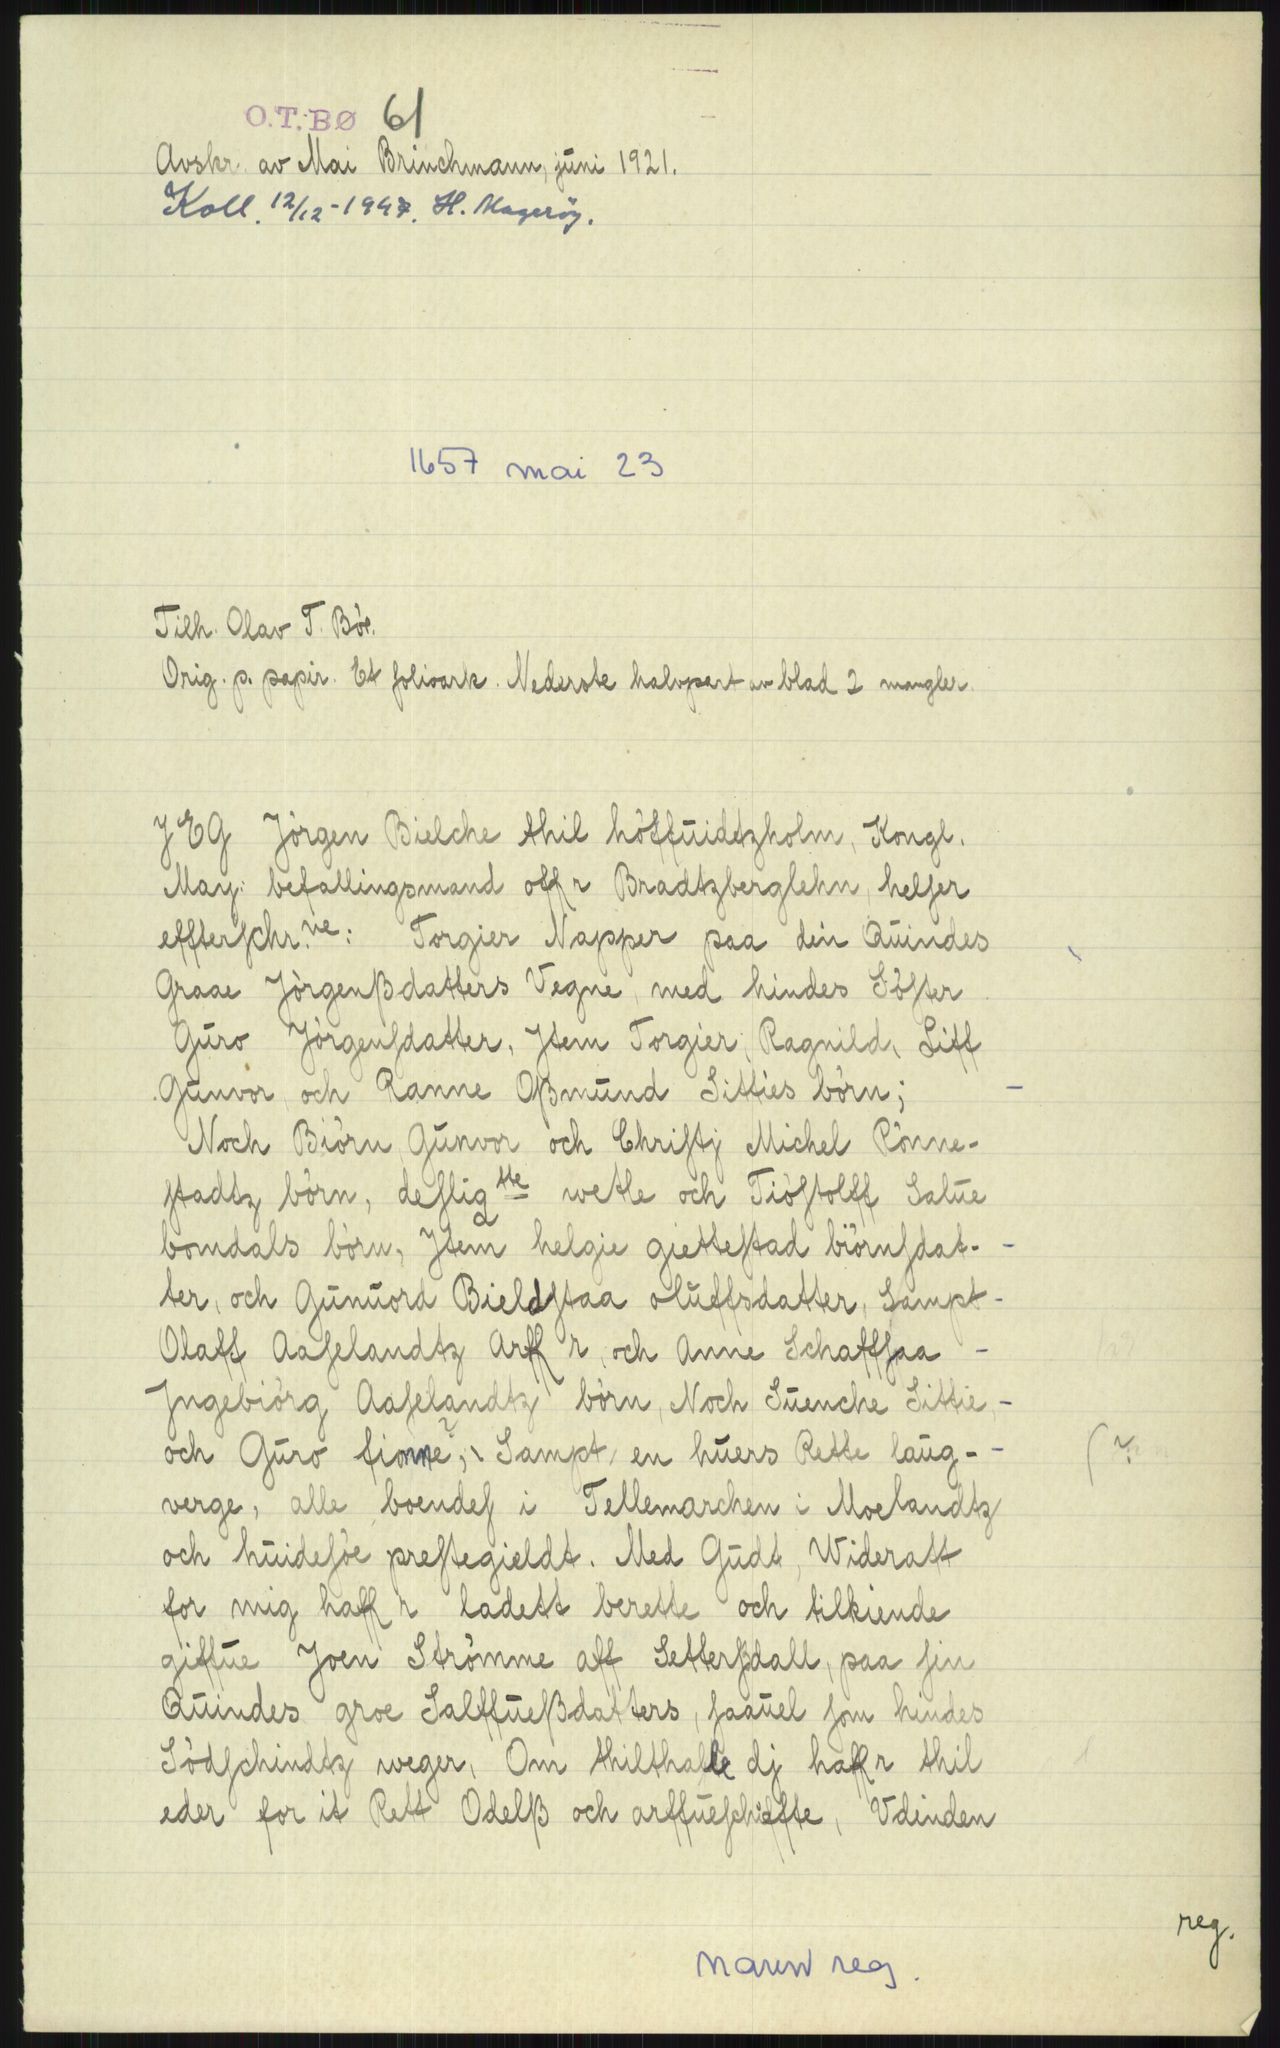 O.T. BØ 61
Avskr. av Mai Brinchmann, juni 1921.
Koll. 12/12-1947. H. Magerøy.
1657 mai 23
Tilh. Olav T. Bö.
Orig. p. papir. Et folioark. Nederste halvpart av blad 2 mangler.
JEG Jörgen Bielche thil höffuidtzholm, Kongl.
May: befallingsmand offr Bradtzberglehn, helser
effterschr.ne: Torgier Napper paa din Quindes
Graae Jörgenßdatters Vegne, med hindes Söster
Guro Jörgensdatter, Jtem Torgier, Ragnild, Liff
Gunvor, och Ranne Oßmund Sitties börn;
Noch Biörn, Gunvor och Christj Michel Rönne-
stadtz börn, desligtte wetle och Tiöstolff Salue
bomdals börn, Jtem helgie giettestad biörnsdat-
ter, och Gunuord Bieldstaa oluffsdatter, Sampt
Olaff Aaselandtz Arffr, och Anne Schaffsaa
Jngebiörg Aaselandtz börn, Noch Suenche Sittie,
och Guro fionne?, Sampt en huers Rette laug-
verge, alle boendes i Tellemarchen i Moelandtz
och huidesöe prestegieldt. Med Gudt, Wideratt
for mig haffr ladett berette och tilkiende
giffue Joen Strömme aff Settersdall, paa sin
Quindes groe Salffueßdatters, saauel som hindes
Södschindtz weger, Om thilthalle dj haffr thil
eder for it Rett Odelß och arffueschiffte, Vdinden
reg.
navnreg.